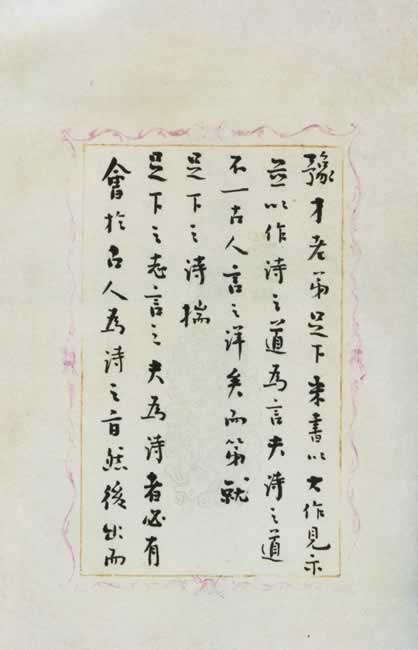 豫才老弟足下來書以大作見示
並以作诗之道為言夫诗之道
不一古人言之详矣而第就
足下之诗揣
足下之志言之夫為诗者必有
會於古人為诗之旨然後出而